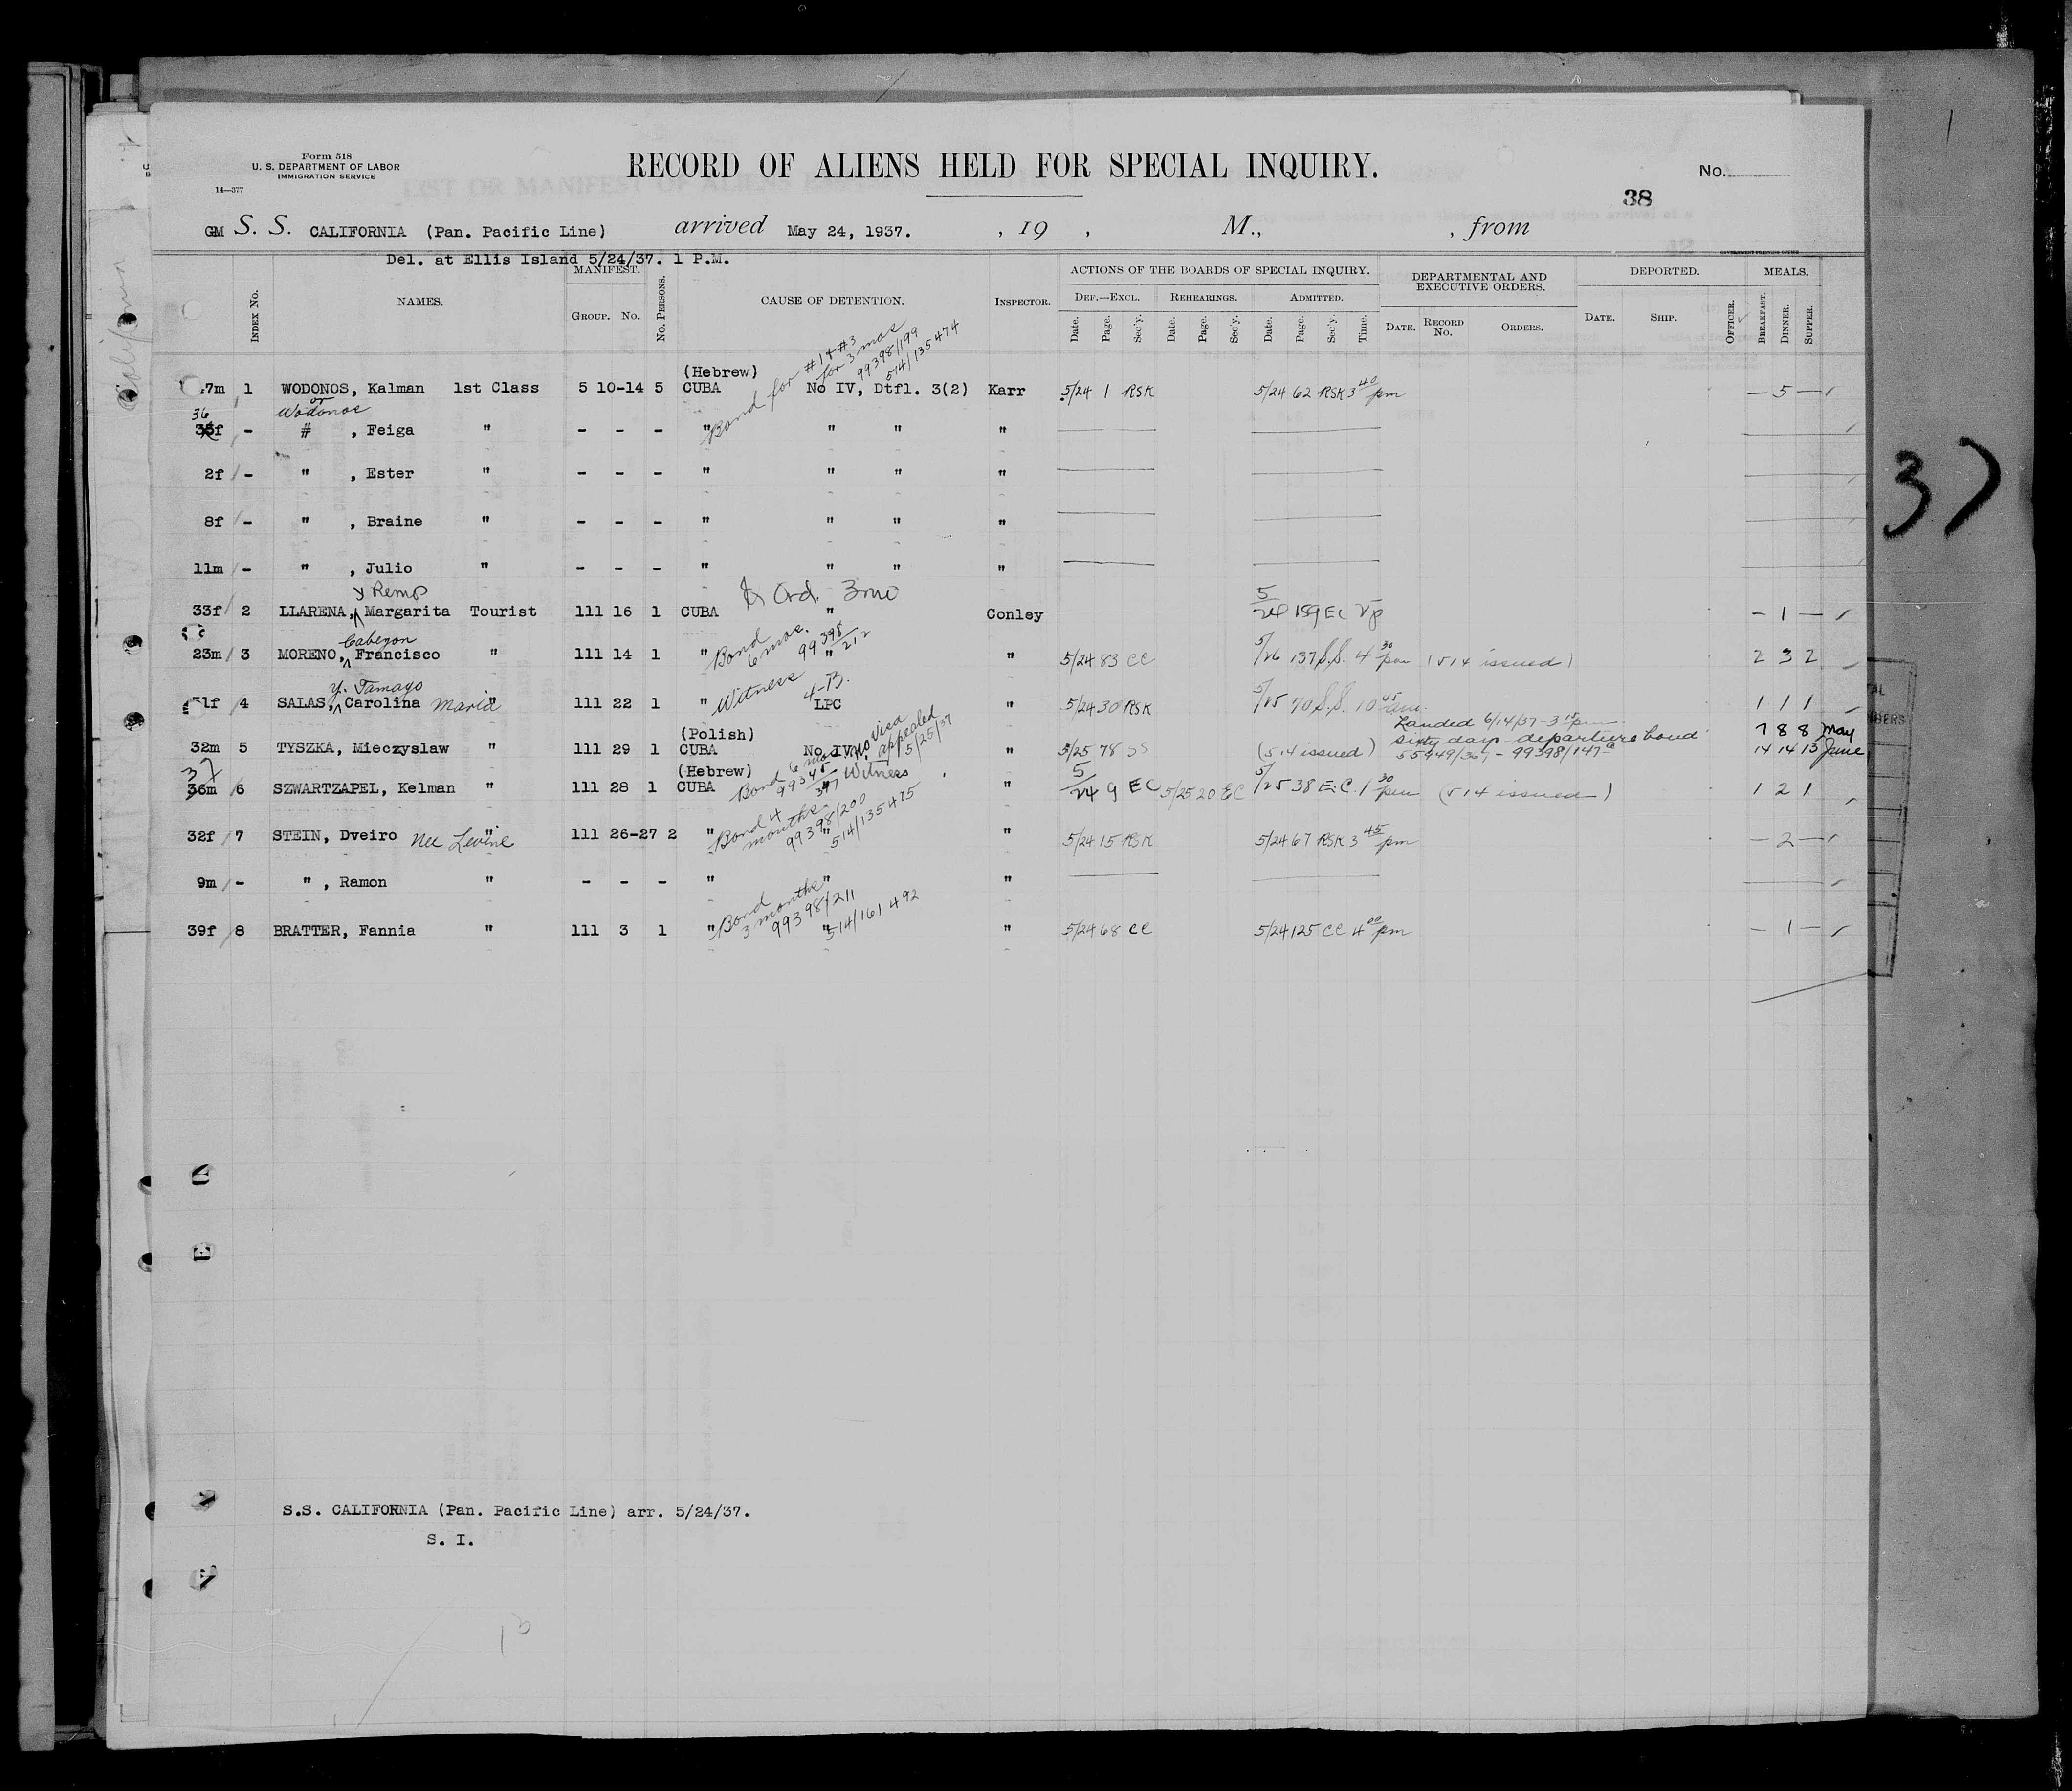 Form 518
U. S. DEPARTMENT OF LABOR
IMMIGRATION SERVICE
14—377
RECORD OF ALIENS HELD FOR SPECIAL INQUIRY.
No.
38
GM S. S. CALIFORNIA (Pan. Pacific Line) arrived May 24, 1937. , 19 , M., , from
Del. at Ellis Island 5/24/37. 1 P.M.
INDEX No. NAMES. MANIFEST. GROUP. NO. No. PERSONS. CAUSE OF DETENTION. INSPECTOR. ACTIONS OF THE BOARDS OF SPECIAL INQUIRY. DEPARTMENTAL AND EXECUTIVE ORDERS. DEPORTED. MEALS.
DEF.—EXCL. REHEARINGS. ADMITTED.
Date. Page. Sec'y. Date. Page. Sec'y. Date. Page. Sec'y. Time. DATE. RECORD No. ORDERS. DATE. SHIP. OFFICER. BREAKFAST. DINNER. SUPPER.
Bond for #1 & #3 for 3 mos 99398/199 514/135474
(Hebrew)
7m 1 WODONOS, Kalman 1st Class 5 10-14 5 CUBA No IV, Dtfl. 3(2) Karr 5/24 1 RSK 5/24 62 RSK 3 40 pm — 5 —
or Wodonos
36
f - # , Feiga " - - - " " " "
2f - " , Ester " - - - " " " "
8f - " , Braine " - - - " " " "
11m - " , Julio " - - - " " " "
y Remp
Ord. 3mo
33f 2 LLARENA, Margarita Tourist 111 16 1 CUBA " Conley 5/24 159 EC — 1 —
Cabezon
Bond 6 mos. 99398/212
23m 3 MORENO, Francisco " 111 14 1 " " " 5/24 83 CC 5/26 137 S.S. 4 30 pm (514 issued) 2 3 2
y. Tamayo
Witness 4-B.
1f 4 SALAS, Carolina Maria " 111 22 1 " LPC " 5/24 30 RSK 5/25 70 S.S. 10 45 am. 1 1 1
Landed 6/14/37 - 3 15 pm
(Polish) No visa appealed 5/25/37
32m 5 TYSZKA, Mieczyslaw " 111 29 1 CUBA No IV, " 5/25 78 SS (514 issued) sixty day departure bond 7 8 8 May
55949/367 - 99398/147 14 14 13 June
37
(Hebrew) Bond 6 mos. Witness
36m 6 SZWARTZAPEL, Kelman " 111 28 1 CUBA " " 5/24 9 EC 5/25 20 EC 5/25 38 E.C. 1 30 pm (514 issued) 1 2 1
Bond 4 months 99398/200 514/135475
32f 7 STEIN, Dveiro nee Levine " 111 26-27 2 " " " 5/24 15 RSK 5/24 67 RSK 3 45 pm — 2 —
9m - " , Ramon " - - - " " "
Bond 3 months 99398/211 514/161492
39f 8 BRATTER, Fannia " 111 3 1 " " " 5/24 68 CC 5/24 125 CC 4 00 pm — 1 —
37
S.S. CALIFORNIA (Pan. Pacific Line) arr. 5/24/37.
S. I.